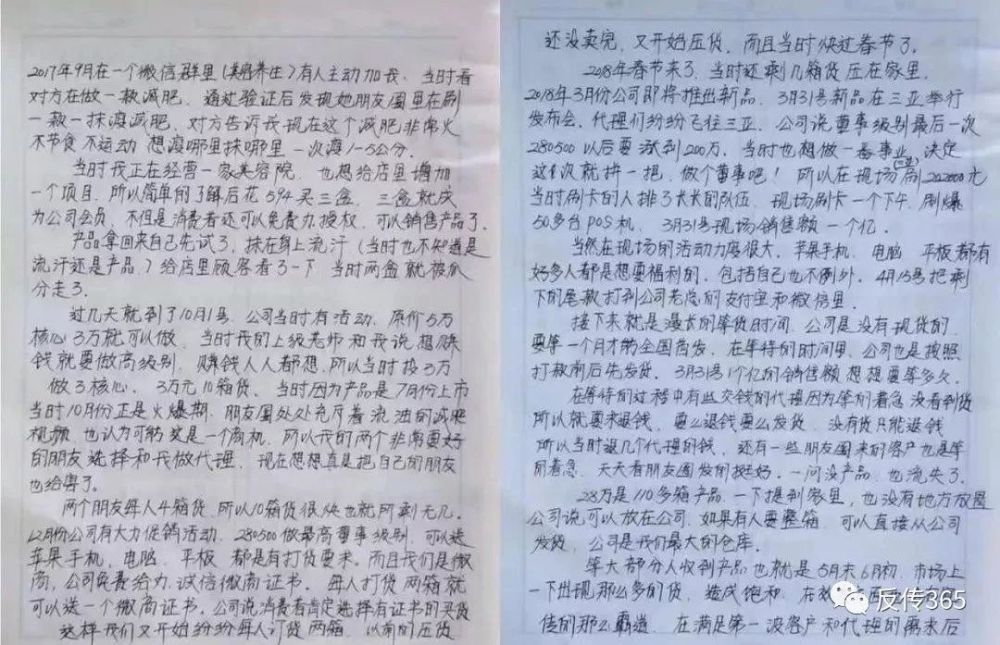 2017年9月在一个微信群里(美容养生)有人主动加我、当时看
对方在做一款减肥、通过验证后发现她朋友圈里在刷
一款一抹瘦减肥、对方告诉我现在这个减肥非常火
不节食 不运动 想瘦哪里抹哪里 一次瘦1-5公分.
当时我正在经营一家美容院、也想给店里增加
一个项目、所以简单的了解后花594买三盒、三盒就成
为公司会员、不但是消费者还可以免费办授权、可以销售产品了、
产品拿回来自己先试了、抹在身上流汗(当时也不知道是
流汗还是产品、)给店里顾客看了一下 当时两盒就被瓜
分走了.
过几天就到了10月1号、公司当时有活动、原价5万
核心3万就可以做、当时我的上级老师和我说想赚
钱就要做高级别、赚钱人人都想、所以当时投3万
做3核心、3万元10箱货、当时因为产品是7月份上市
当时10月份正是火爆期、朋友圈处处充斥着流油的减肥
视频、也认为可能这是一个商机、所以我的两个非常要好
的朋友选择和我做代理、现在想想真是把自己的朋友
也给害了.
两个朋友每人4箱货、所以10箱货很快也就所剩无几.
12月份公司有大力促销活动、280500做最高董事级别、可以送
苹果手机、电脑、平板 都是有打货要求、而且我们是微
商、公司免费给办诚信微商证书、每人打货两箱就
可以送一个微商证书、公司说消费者肯定选择有证书的买货
这样我们又开始纷纷每人订货两箱、以前的压货
还没卖完、又开始压货、而且当时快过春节了.
2018年春节来了、当时还剩几箱货压在家里.
2018年3月份公司即将推出新品、3月31号新品在三亚举行
发布会、代理们纷纷飞往三亚、公司说董事级别最后一次
280500 以后要涨到200万、当时也想做一番事业、决定
这1次就拼一把、做个董事吧!所以在现场刷202000元
当时刷卡的人排了长长的队伍、现场刷卡一个下午、刷爆
50多台POS机、3月31号现场销售额一个亿.
当然在现场的活动力度很大、苹果手机、电脑 平板都有
好多人都是想要福利的、包括自己也不例外、4月15号把剩
下的尾款打到公司老总的支付宝和微信里.
接下来就是漫长的等货时间、公司是没有现货的、
要等一个月才能全国首发、在等待的时间里、公司也是按照
打款前后先发货、3月31号1个亿的销售额想想要等多久、
在等待的过程中有些交钱的代理因为等的着急 没看到货
所以就要求退钱、要么退钱要么发货、没有货只能退钱
所以当时退几个代理的钱、还有一些朋友圈来的客户也是等
的着急、天天看朋友圈发的挺好、一问没产品、也流失了.
28万是110多箱产品、一下提到家里、也没有地方放置
公司说可以放在公司、如果有人要整箱、可以直接从公司
发货、公司是我们最大的仓库.
等大部分人收到产品也就是5月末6月初、市场上
一下出现那么多的货、造成饱和、在效
传的那么霸道、在满足第一波客户和代理的需求后
反传365